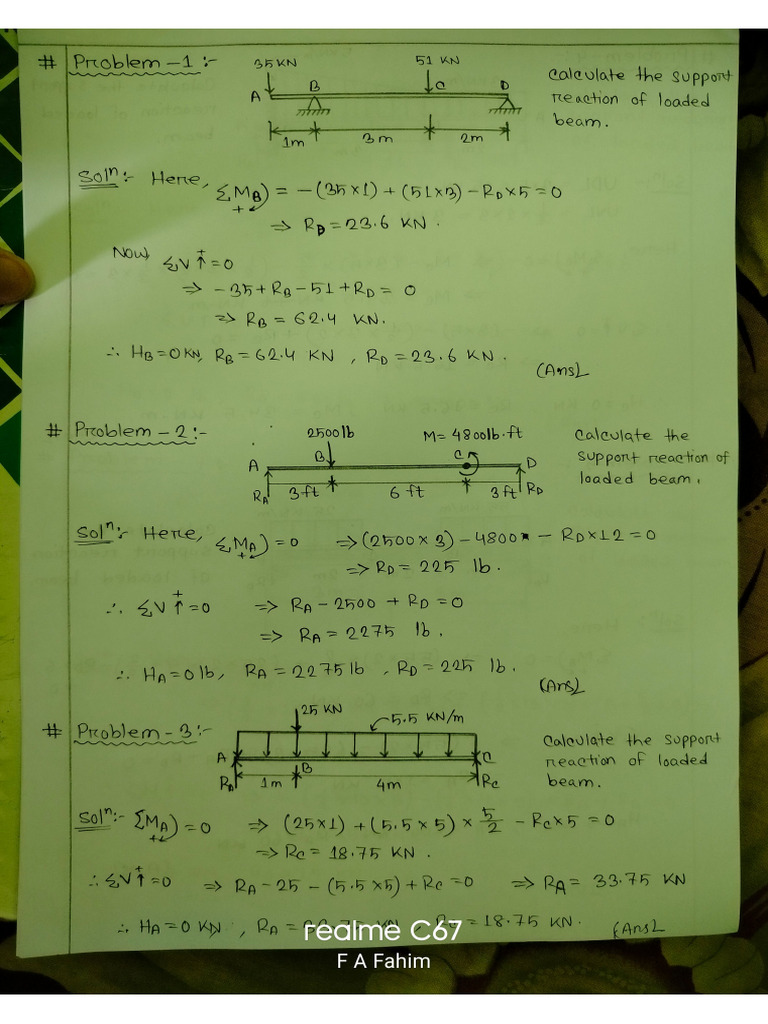 # Problem-1:-
35 KN 51 KN
A B C D
1m 3m 2m
Calculate the support
reaction of loaded
beam.
Solⁿ:- Here, ΣM_B) = -(35×1) + (51×3) - R_D×5 = 0
+
⇒ R_D = 23.6 KN.
Now ΣV ↑+ = 0
⇒ -35 + R_B - 51 + R_D = 0
⇒ R_B = 62.4 KN.
∴ H_B = 0 KN, R_B = 62.4 KN, R_D = 23.6 KN.
(Ans)
# Problem-2:-
2500 lb M= 4800 lb.ft
A B C D
R_A 3 ft 6 ft 3 ft R_D
Calculate the
support reaction of
loaded beam.
Solⁿ:- Here, ΣM_A) = 0 ⇒ (2500 × 3) - 4800 - R_D×12 = 0
+
⇒ R_D = 225 lb.
∴ ΣV ↑+ = 0 ⇒ R_A - 2500 + R_D = 0
⇒ R_A = 2275 lb.
∴ H_A = 0 lb, R_A = 2275 lb, R_D = 225 lb.
(Ans)
# Problem-3:-
25 KN 5.5 KN/m
A B C
R_A 1m 4m R_C
Calculate the support
reaction of loaded
beam.
Solⁿ:- ΣM_A) = 0 ⇒ (25×1) + (5.5 × 5) × 5/2 - R_C×5 = 0
+
⇒ R_C = 18.75 KN.
∴ ΣV ↑+ = 0 ⇒ R_A - 25 - (5.5×5) + R_C = 0 ⇒ R_A = 33.75 KN
∴ H_A = 0 KN, R_A = KN, R_C = 18.75 KN.
(Ans)
realme C67
F A Fahim